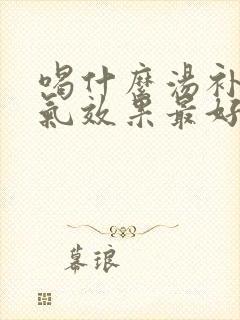 喝什麼湯补
氣效果最好
幕琅